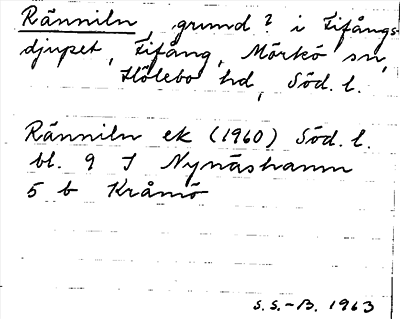 Ränniln, grund? i Fifångs-
djupet, Fifång, Mörkö sn,
Hölebo hd, Söd. l.
Ränniln ek (1960) Söd. l.
bl. 9 I Nynäshamn
5 b Kråmö
S. S.-B. 1963